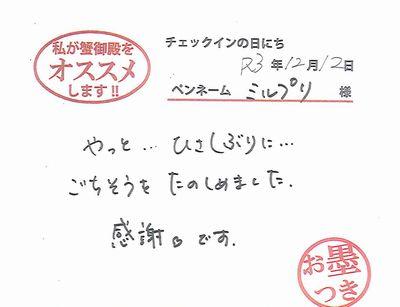 私が蟹御殿を
オススメ
します!!
チェックインの日にち
R3年12月12日
ペンネーム ミルプリ 様
やっと… ひさしぶりに…
ごちそうを たのしめました.
感謝。です.
お墨
つき